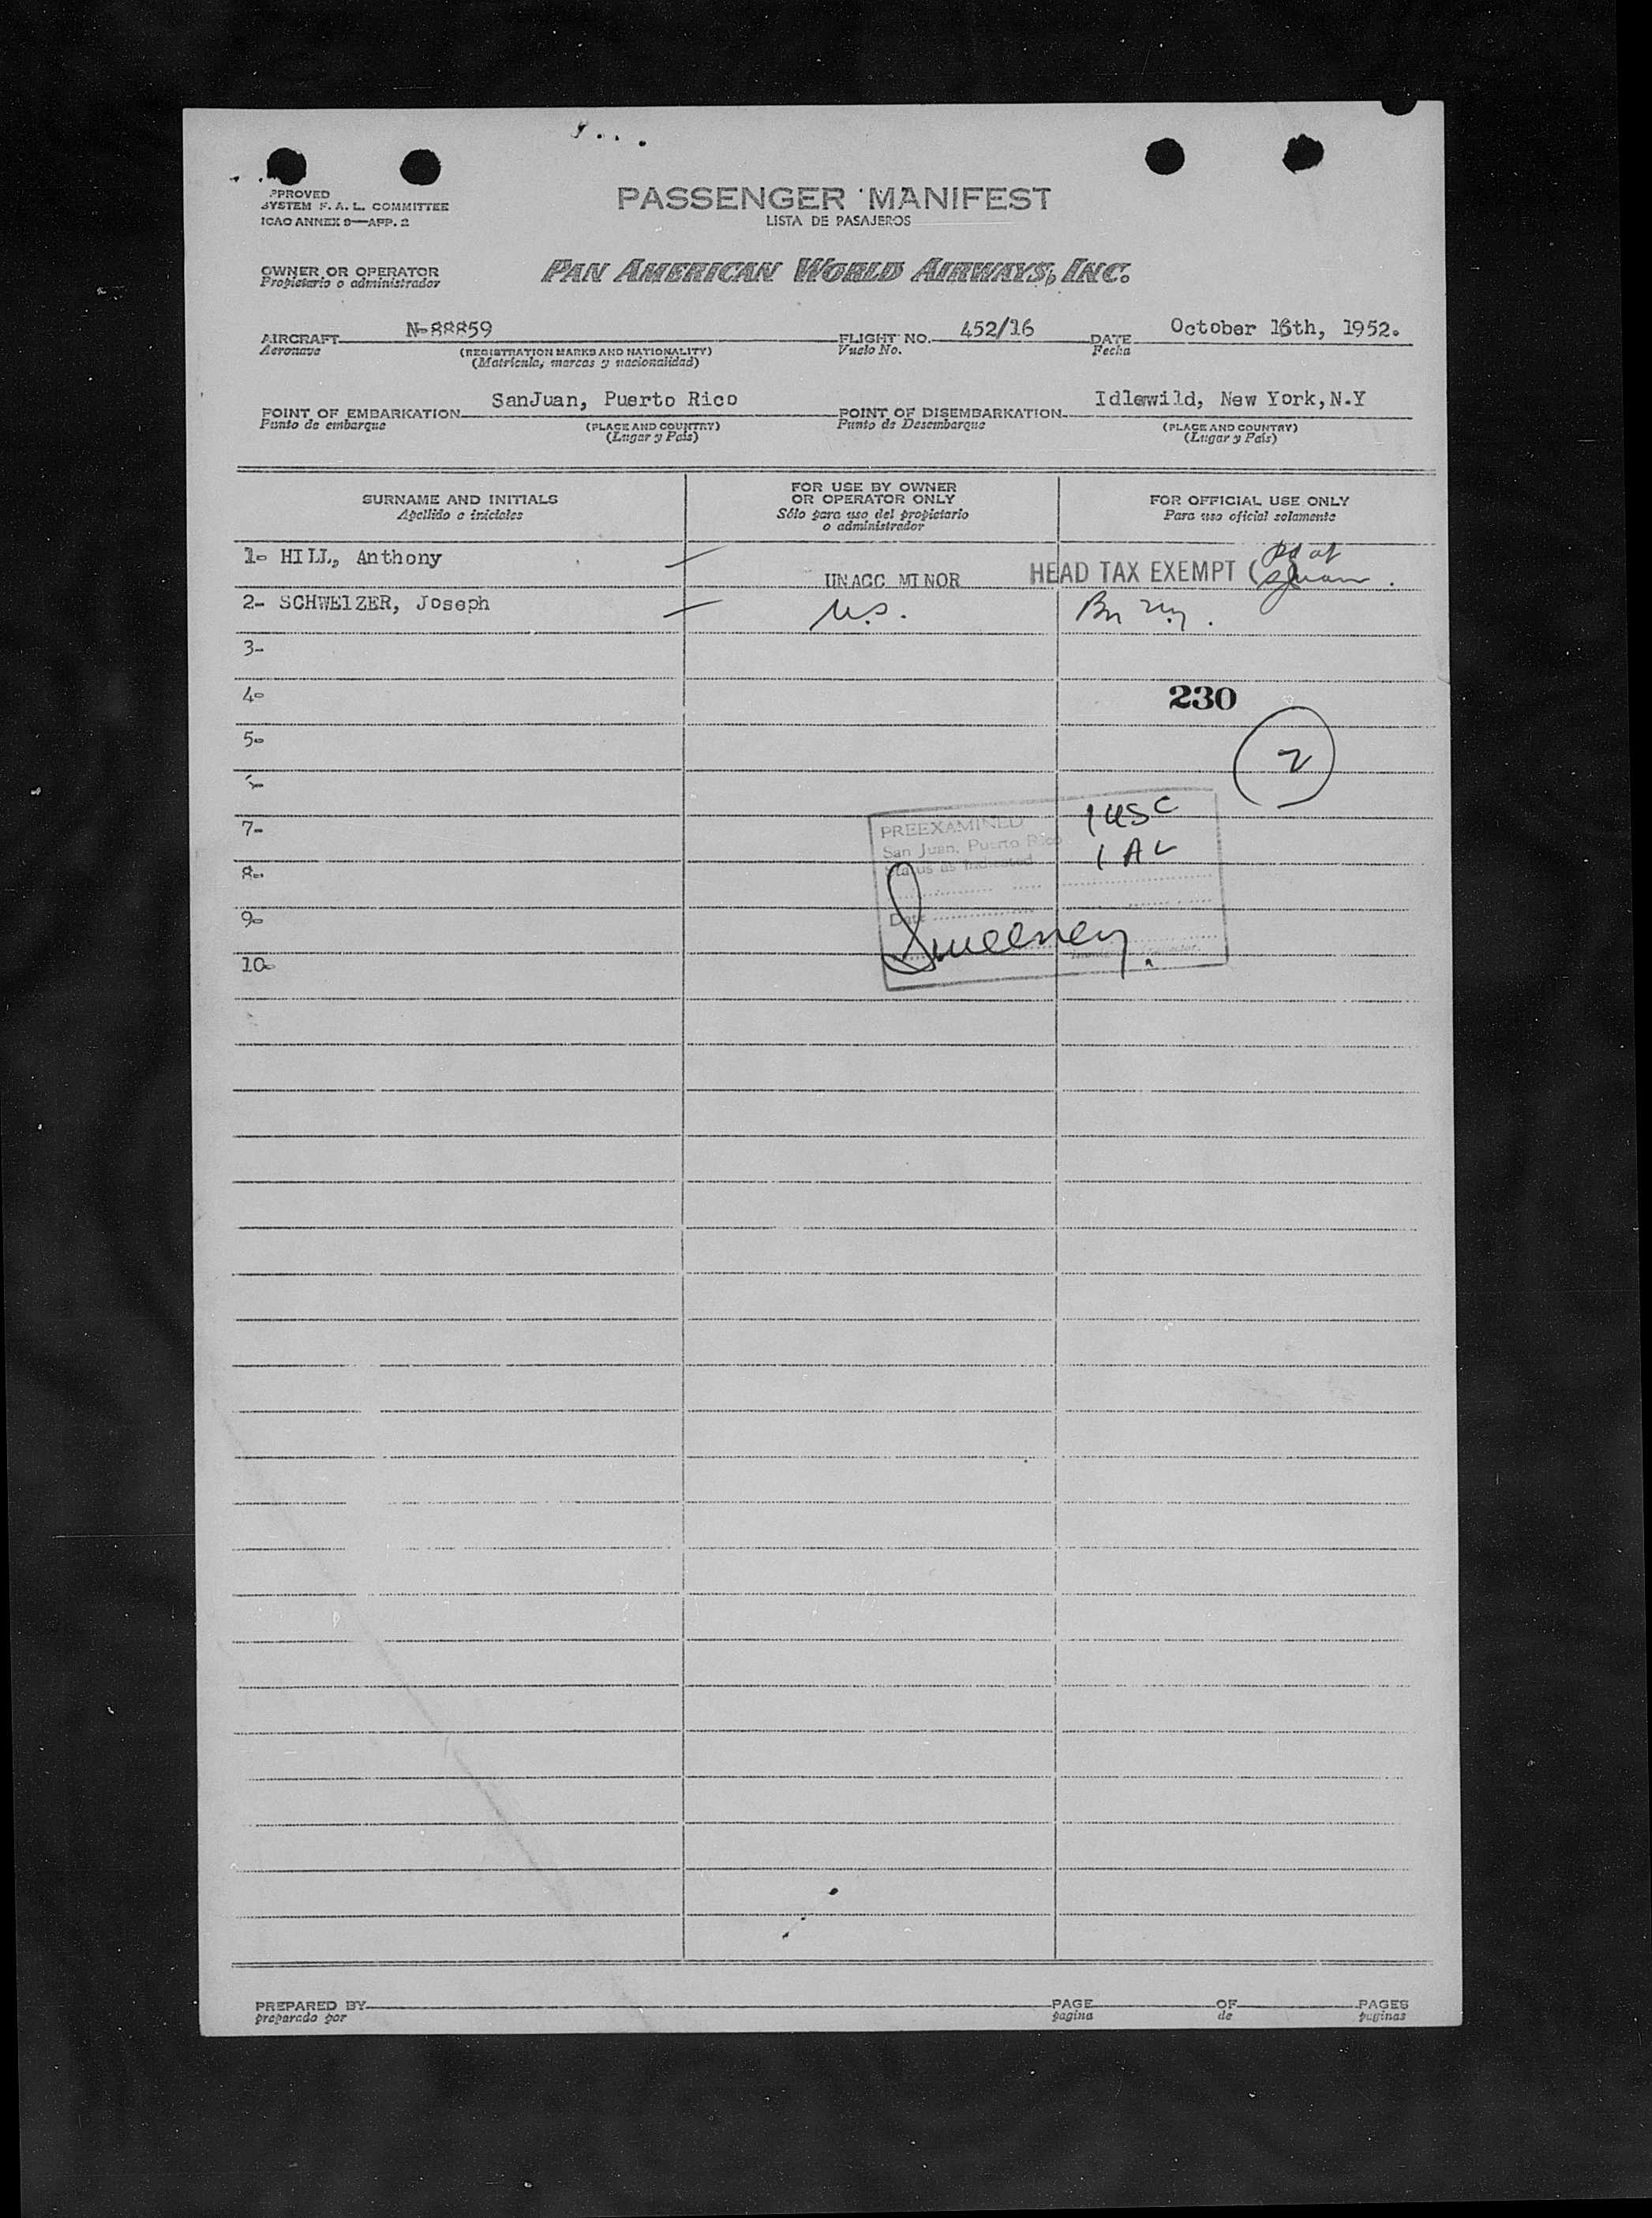 PPROVED
SYSTEM F. A. L. COMMITTEE
ICAO ANNEX 9—APP. 2
PASSENGER MANIFEST
LISTA DE PASAJEROS
OWNER OR OPERATOR
Propietario o administrador
PAN AMERICAN WORLD AIRWAYS, INC.
AIRCRAFT N-88859 FLIGHT NO. 452/16 DATE October 16th, 1952.
Aeronave (REGISTRATION MARKS AND NATIONALITY) Vuelo No. Fecha
(Matrícula, marcas y nacionalidad)
POINT OF EMBARKATION SanJuan, Puerto Rico POINT OF DISEMBARKATION Idlewild, New York, N.Y
Punto de embarque (PLACE AND COUNTRY) Punto de Desembarque (PLACE AND COUNTRY)
(Lugar y País) (Lugar y País)
SURNAME AND INITIALS
Apellido e iniciales
FOR USE BY OWNER
OR OPERATOR ONLY
Sólo para uso del propietario
o administrador
FOR OFFICIAL USE ONLY
Para uso oficial solamente
1- HILL, Anthony UNACC MINOR HEAD TAX EXEMPT (pd at
SJuan.
2- SCHWEIZER, Joseph U.S. Bn ny.
3-
4- 230
5- 2
7- 1 USC
8- 1 AL
9-
10-
PREEXAMINED
San Juan, Puerto Rico
Status as indicated
Date
Sweeney.
PREPARED BY PAGE OF PAGES
preparado por pagina de paginas